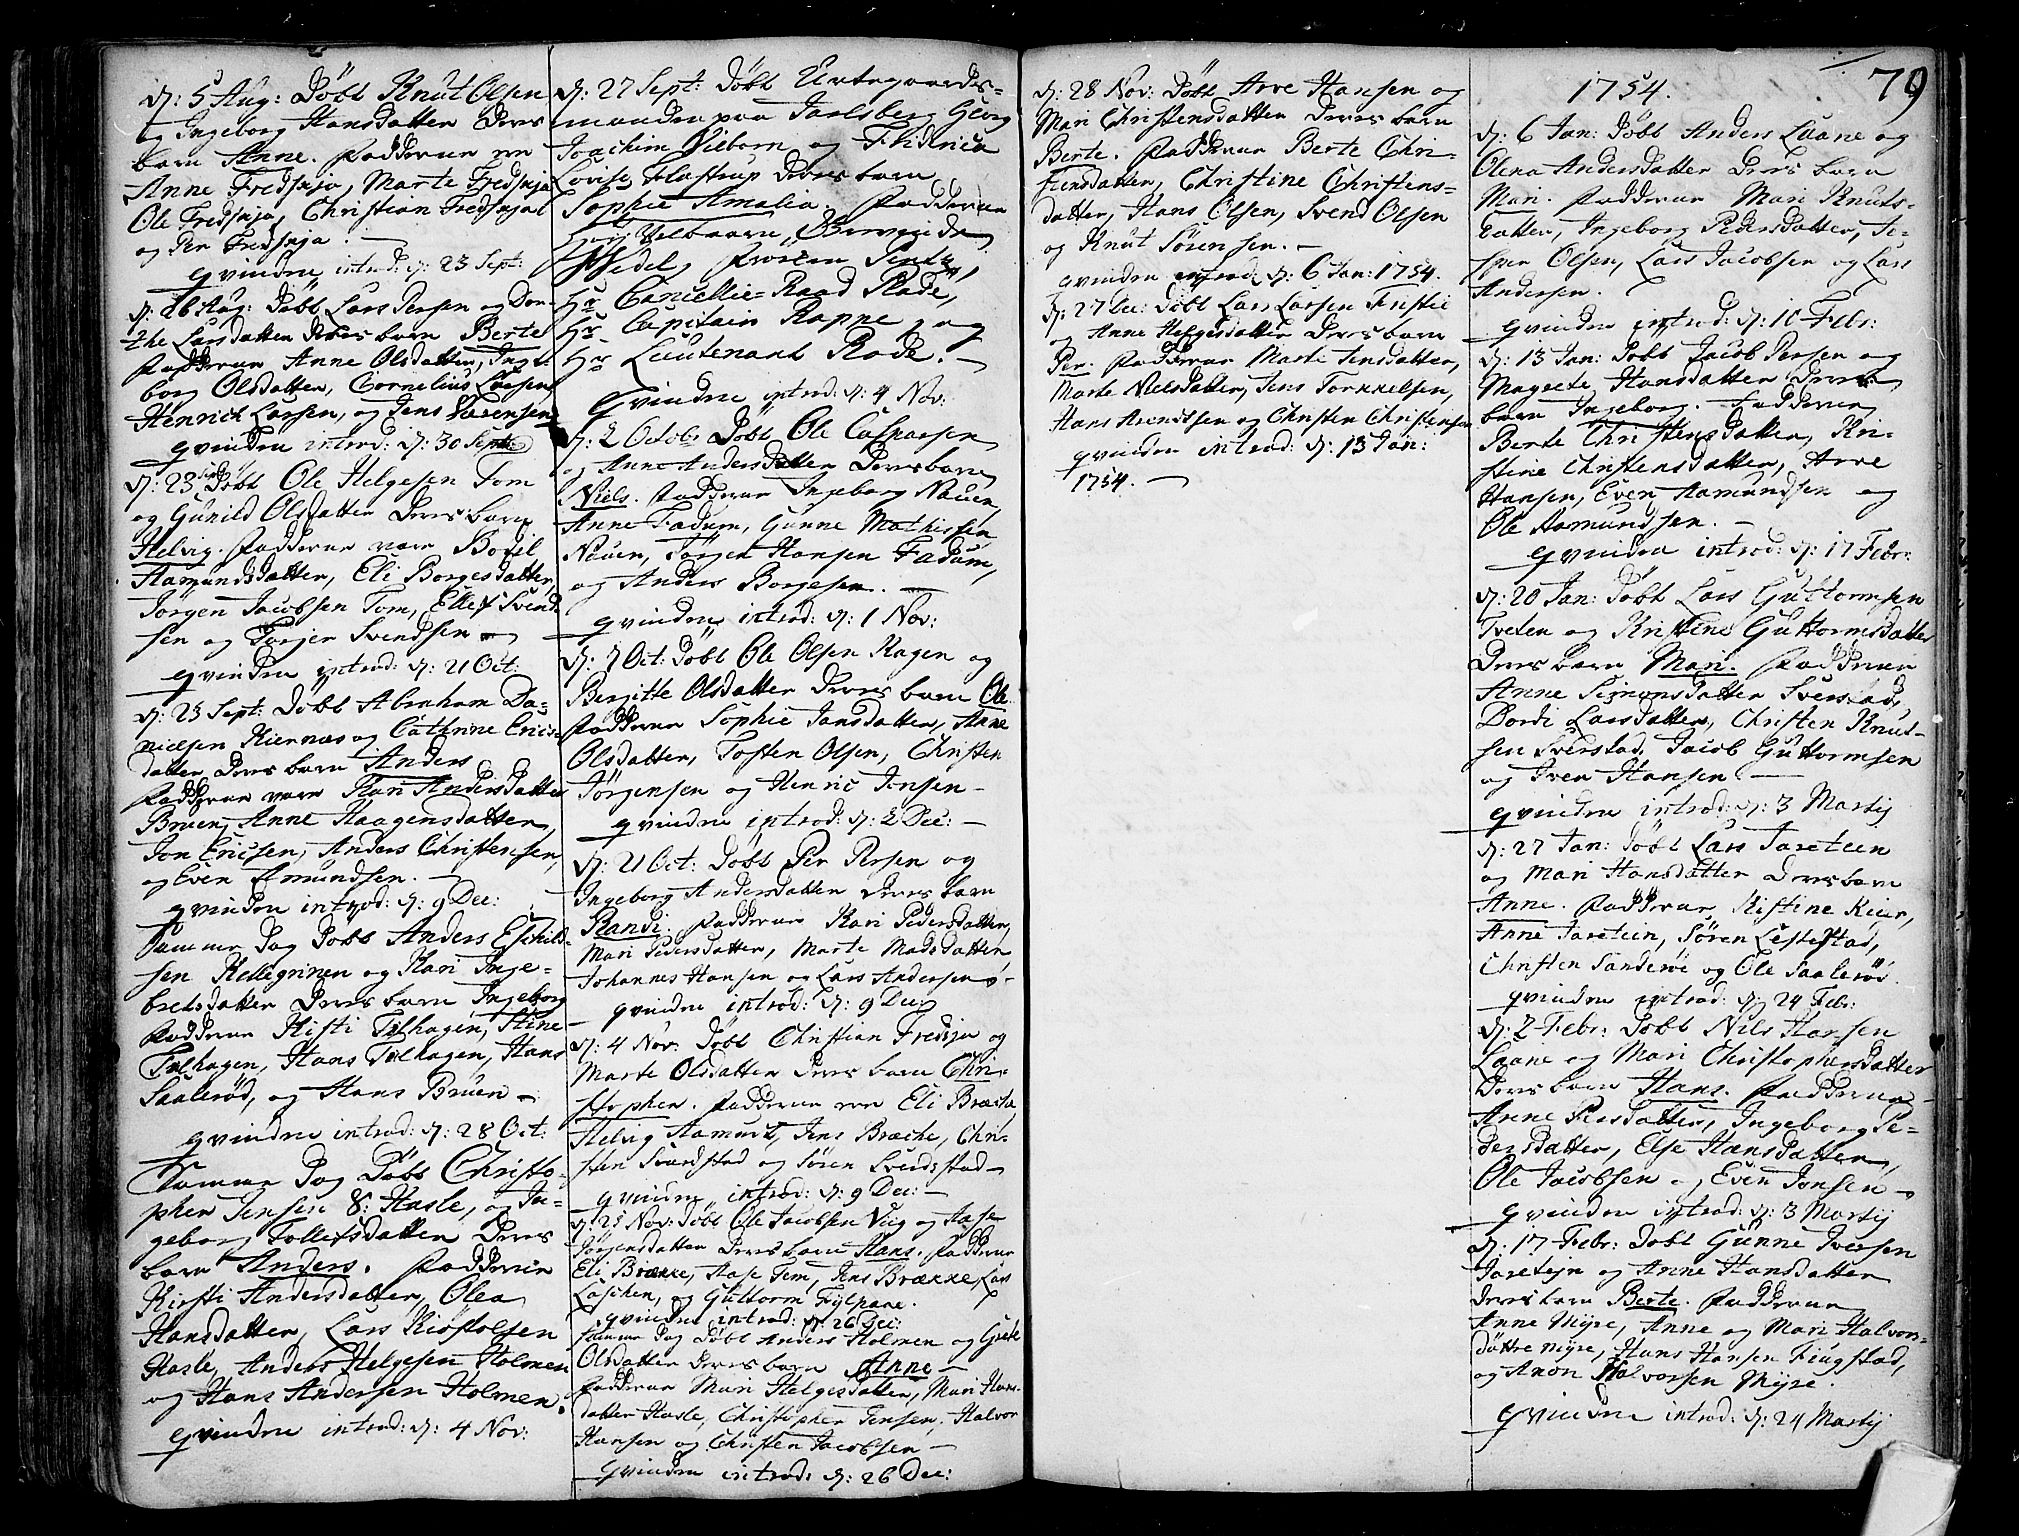 d: 5 Aug: Döbt Knut Olsen
og Ingeborg Hansdatter Deres
barn Anne. Fadderne
Anne Fredsnja, Marte Fredsnja
Ole Fredsnja, Christian Fredsnja
og Per Fredsnja.
qvinden introd: d: 23 Sept:
d: 26 Aug: Döbt Lars Persen og Dor-
the Larsdatter Deres barn Berte
Fadderne Anne Olsdatter, Inge-
borg Olsdatter, Cornelius Larsen
Henrich Larsen, og Jens Sörensen
qvinden introd: d: 30 Sept:
d: 23 Döbt Ole Helgesen Tom
og Gunild Olsdatter Deres barn
Helvig. Fadderne vare Bodil
Aamundsdatter, Eli Borgesdatter,
Jörgen Jacobsen Tom, Ellef Svend-
sen og Torger Svendsen
qvinden introd: d: 21 Oct:
d: 23 Sept: Döbt Abraham Da-
nielsen Kiernæs og Cathrine Erics-
datter Deres barn Anders
Fadderne vare Kari Andersdatter
Bruen, Anne Haagensdatter,
Jon Ericsen, Anders Christensen,
og Even Amundsen.
qvinden introd: d: 9 Dec:
Samme Dag Döbt Anders Eschild-
sen Kellegrinen og Kari Inge-
bretsdatter Deres barn Ingeborg
Fadderne Kisti Falhagen, Stine
Falhagen, Hans Falhagen, Hans
Saaleröd, og Hans Bruen
qvinden introd: d: 28 Oct:
Samme Dag Döbt Christo-
pher Jensen Hasle, og In-
geborg Tollefsdatter Deres
barn Anders. Fadderne
Kirsti Andersdatter, Olea
Hansdatter, Lars Kiöstolsen
Hasle, Anders Helgesen Holmen
og Hans Andersen Holmen.
qvinden introd: d: 4 Nov:
d: 27 Sept: Döbt Urtegaards-
manden paa Jarlsberg Georg
Joachim Vieborn og Fridirica
Lovise Flastrup Deres barn
Sophie Amalia. Fadderne
Höy Velbaarn,
Frölein
Hr Cancellie-Raad Rode,
Hr Capitain Rappe, og
Hr Lieutenant Rode.
qvinden introd: d: 4 Nov:
d: 2 Octob: Döbt Ole Casparsen
og Anne Andersdatter Deres barn
Niels. Fadderne Ingeborg Nauen,
Anne Fadum, Gunne Mathissen
Nauen, Jörgen Hansen Fadum,
og Anders Borgesen.
qvinden introd: d: 1 Nov:
d: 7 Oct: Döbt Ole Olsen Hagen og
Bergitte Olsdatter Deres barn Ole
Fadderne Sophie Jansdatter, Anne
Olsdatter, Tosten Olsen, Christen
Jörgensen og Henric Jonsen
qvinden introd: d: 2 Dec:
d: 21 Oct: Döbt Per Persen og
Ingeborg Andersdatter Deres barn
Randi. Fadderne Kari Pedersdatter,
Mari Pedersdatter, Marte Madsdatter
Johannes Hansen og Lars Andersen
qvinden introd: d: 9 Dec:
d: 4 Nov: Döbt Christian Fredsja og
Marte Olsdatter Deres barn Chri-
stopher. Fadderne Eli Bræche,
Helvig Aamunt, Jens Bræche, Chri-
sten Svendstad og Sören Svendstad
qvinden introd: d: 9 Dec:
d: 25 Nov: Döbt Ole Jacobsen Vug og Aase
Jörgensdatter Deres barn Hans. Fadderne
Eli Brække, Aase Fem, Jens Brække, Lars
Laschen, og Guttorm Fylpane.
qvinden introd: d: 26 Dec:
Samme Dag Döbt Anders Holmen og Grete
Olsdatter Deres barn Anne
Fadderne Mari Helgesdatter, Mari Hans-
datter Hasle, Christopher Jensen, Halvor
Hansen og Christen Jacobsen
qvinden introd: d: 26 Dec:
d: 28 Nov: Döbt Arve Hansen og
Mari Christensdatter Deres barn
Berte. Fadderne Berte Chri-
stensdatter, Christine Christens-
datter, Hans Olsen, Svend Olsen
og Knut Sörensen.
qvinden introd: d: 6 Jan: 1754.
d: 27 Dec: Döbt Lars Larsen Fristie
og Anne Helgesdatter Deres barn
Per. Fadderne Marte Jensdatter,
Marte Nielsdatter, Jens Torkkelsen,
Hans Arendtsen og Christen Christensen
qvinden introd: d: 13 Jan:
1754.
79
1754.
d: 6 Jan: Döbt Anders Laane og
Olena Andersdatter Deres barn
Mari. Fadderne Mari Knuts-
datter, Ingeborg Pedersdatter, Je-
sper Olsen, Lars Jacobsen og Lars
Andersen.
qvinden introd: d: 10 Febr:
d: 13 Jan: Döbt Jacob Persen og
Magrete Hansdatter Deres
barn Ingeborg. Fadderne
Berte Christensdatter, Kri-
stine Christensdatter, Arve
Hansen, Even Aamundsen og
Ole Aamundsen.
qvinden introd: d: 17 Febr:
d: 20 Jan: Döbt Lars Guttormsen
Tveten og Kristine Guttormsdatter
Deres barn Mari. Fadderne
Anne Simonsdatter Sverstad,
Dordi Larsdatter, Christen Knud-
sen Sverstad, Jacob Guttormsen
og Iver Hansen
qvinden introd: d: 3 Martij
d: 27 Jan: Döbt Lars Jareteien
og Mari Hansdatter Deres barn
Anne. Fadderne Kistine Keier,
Anne Jareteien, Sören Lestestad,
Christen Sanderöe og Ole Saaleröd.
qvinden introd: d: 24 Febr:
d: 2 Febr: Döbt Nils Hansen
Laane og Mari Christophersdatter
Deres barn Hans. Fadderne
Anne Persdatter, Ingeborg Pe-
dersdatter, Else Hansdatter,
Ole Jacobsen og Even Jonsen
qvinden introd: d: 3 Martij
d: 17 Febr: Döbt Gunne Iversen
Jaretejn og Anne Hansdatter
Deres barn Berte. Fadderne
Anne Myre, Anne og Mari Halvors-
döttre Myre, Hans Hansen Fiugstad,
og Anon Halvorsen Myre.
qvinden introd: d: 24 Martij